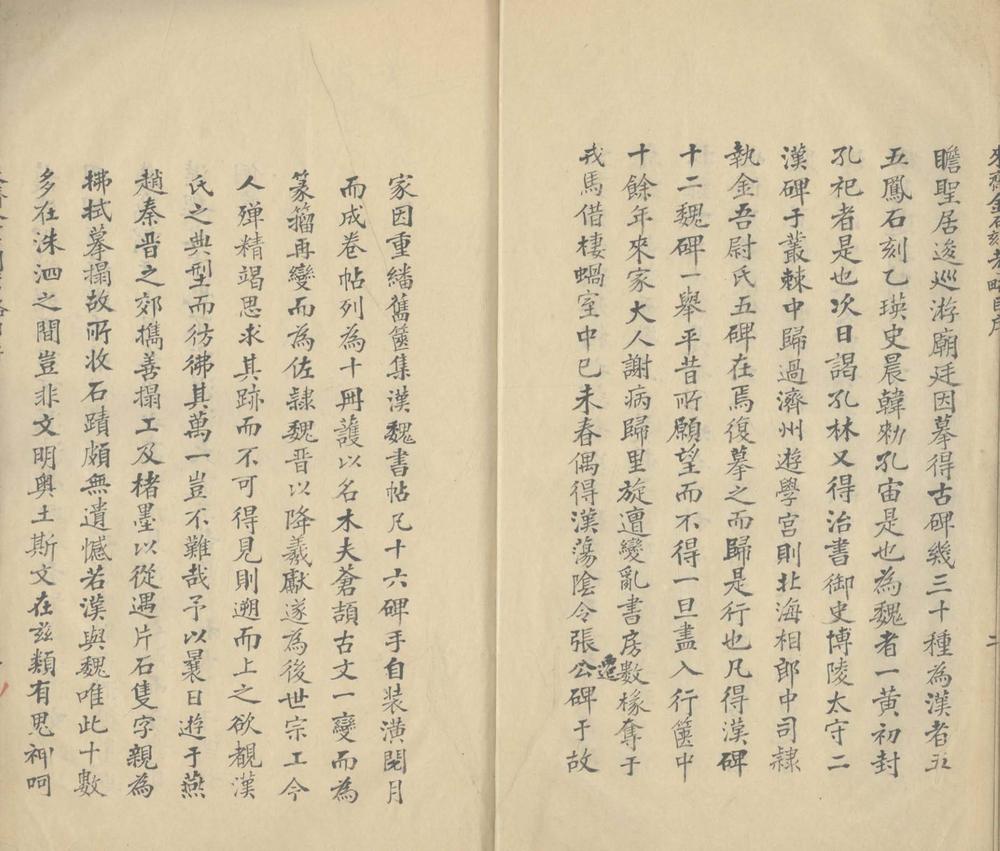 來齋金石刻考略自序
瞻聖居逡巡游廟廷因摹得古碑幾三十種為漢者五
五鳳石刻乙瑛史晨韓勑孔宙是也為魏者一黃初封
孔祀者是也次日謁孔林又得治書御史博陵太守二
漢碑于叢棘中歸過濟州遊學宮則北海相郎中司隸
執金吾尉氏五碑在焉復摹之而歸是行也凡得漢碑
十二魏碑一舉平昔所願望而不得一旦盡入行篋中
十餘年來家大人謝病歸里旋遭變亂書房數椽奪于
戎馬借棲蝸室中已未春偶得漢蕩陰令張公遷碑于故
家因重繙舊篋集漢魏書帖凡十六碑手自裝潢閱月
而成卷帖列為十冊護以名木夫蒼頡古文一變而為
篆籀再變而為佐隸魏晉以降羲獻遂為後世宗工今
人殫精竭思求其跡而不可得見則遡而上之欲覩漢
氏之典型而彷彿其萬一豈不難哉予以曩日遊于燕
趙秦晉之郊攜善搨工及楮墨以從遇片石隻字親為
拂拭摹搨故所收石蹟頗無遺憾若漢與魏唯此十數
多在洙泗之間豈非文明奧土斯文在茲類有鬼神呵